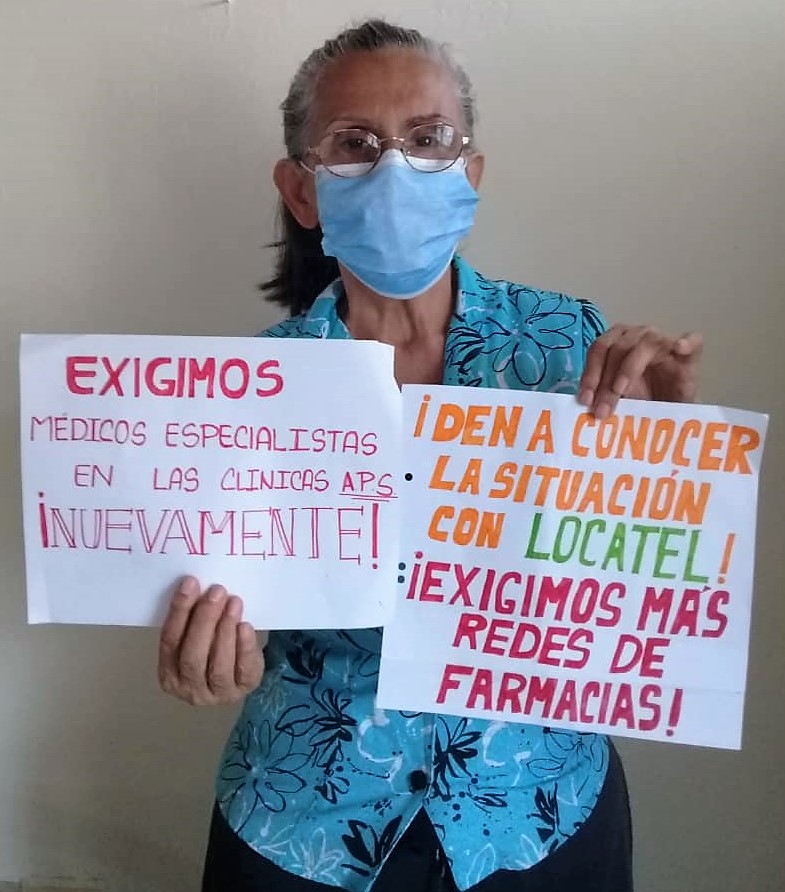 EXIGIMOS
MÉDICOS ESPECIALISTAS
EN LAS CLINICAS A.P.S.
¡NUEVAMENTE!
¡DEN A CONOCER
LA SITUACIÓN
CON LOCATEL!
¡EXIGIMOS MÁS
REDES DE
FARMACIAS!